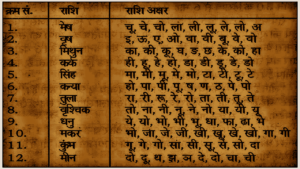 क्रम सं. राशि राशि अक्षर
1. मेष चू, चे, चो, ला, ली, लू, ले, लो, अ
2. वृष इ, ऊ, ए, ओ, वा, वी, वू, वे, वो
3. मिथुन का, की, कू, घ, ङ, छ, के, को, हा
4. कर्क ही, हू, हे, हो, डा, डी, डू, डे, डो
5. सिंह मा, मी, मू, मे, मो, टा, टी, टू, टे
6. हो, पा, पी, पू, ष, ण, ठ, पे, पो
7. तुला रा, री, रू, रे, रो, ता, ती, तू, ते
8. वृश्चिक तो, ना, नी, नू, ने, नो, या, यी, यू
9. धनु ये, यो, भा, भी, भू, धा, फा, ढा, भे
10. मकर भो, जा, जे, जी, खी, खू, खे, खो, गा, गी
11. कुंभ गू, गे, गो, सा, सी, सू, से, सो, दा
12. मीन दो, दू, थ, झ, ञ, दे, दो, चा, ची